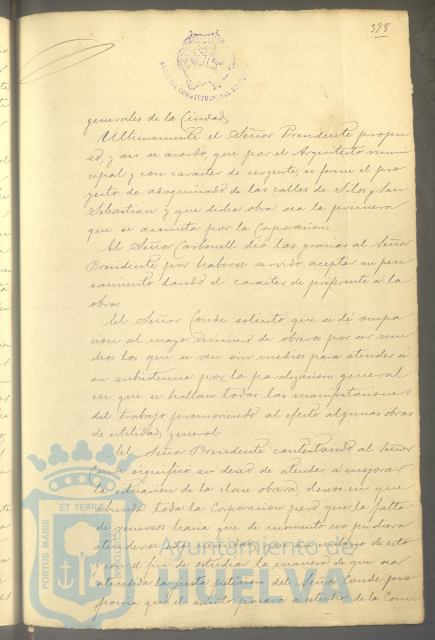 398
ALCALDIA CONSTITUCIONAL
generales de la Ciudad
Ultimamente el Señor Presidente propu
so, y asi se acordo, que por el Arquitecto muni
cipal y con caracter de urgente, se forme el pro
yecto de adoquinado de las calles de Silos y San
Sebastian y que dicha obra sea la primera
que se acometa por la Corporacion.
El Señor Carbonell dió las gracias al Señor
Presidente por haberse servido aceptar su pen
samiento dando el caracter de preferente á la
obra
El Señor Conde solicitó que se dé ocupa
cion al mayor numero de obreros por ser mu
chos los que se ven sin medios para atender á
su subsistencia por la paralizacion general
en que se hallan todas las manifestaciones
del trabajo, promoviendo al efecto algunas obras
de utilidad general
El Señor Presidente contestando al Señor
Conde significó su deseo de atender a mejorar
la situacion de la clase obrera, deseos en que
abunda toda la Corporacion pero que la falta
de recursos hacia que de momento no pudiera
atenderse esta necesidad, sin embargo de esto
y con el fin de estudiar la manera de que sea
atendida la justa peticion del Señor Conde pro
ponia que el asunto pasara a estudio de la Comi
PORTUS MARIS ET TERRAE CUSTODIA
Ayuntamiento de
HUELVA